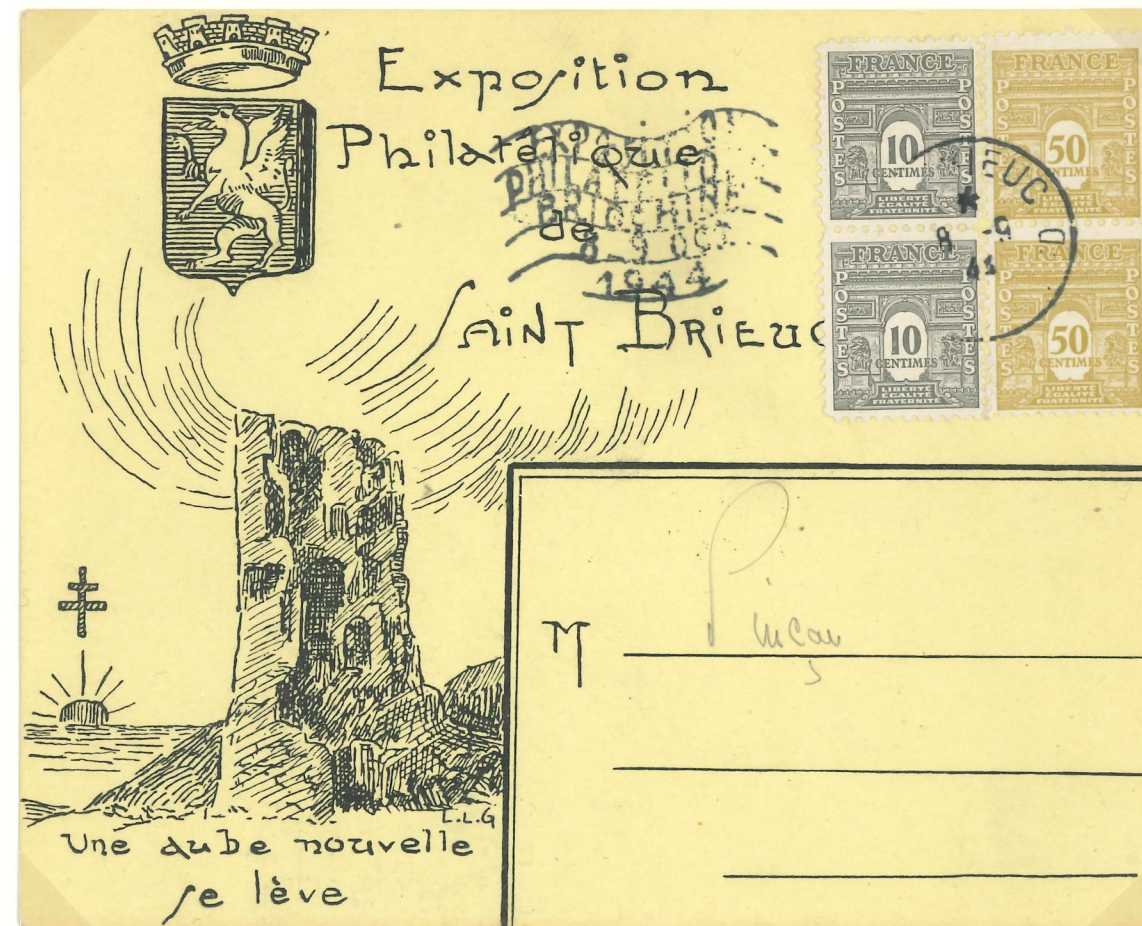 Exposition
Philatélique
de
SAINT BRIEUC
PHILATELIQUE
BRIOCHINE
8-9 OCT
1944
FRANCE
POSTES
POSTES
10
CENTIMES
LIBERTÉ
ÉGALITÉ
FRATERNITÉ
FRANCE
POSTES
POSTES
50
CENTIMES
LIBERTÉ
ÉGALITÉ
FRATERNITÉ
IEUC
8 -9
FRANCE
POSTES
POSTES
10
CENTIMES
LIBERTÉ
ÉGALITÉ
FRATERNITÉ
FRANCE
POSTES
POSTES
50
CENTIMES
LIBERTÉ
ÉGALITÉ
FRATERNITÉ
M
L.L.G
Une aube nouvelle
se lève